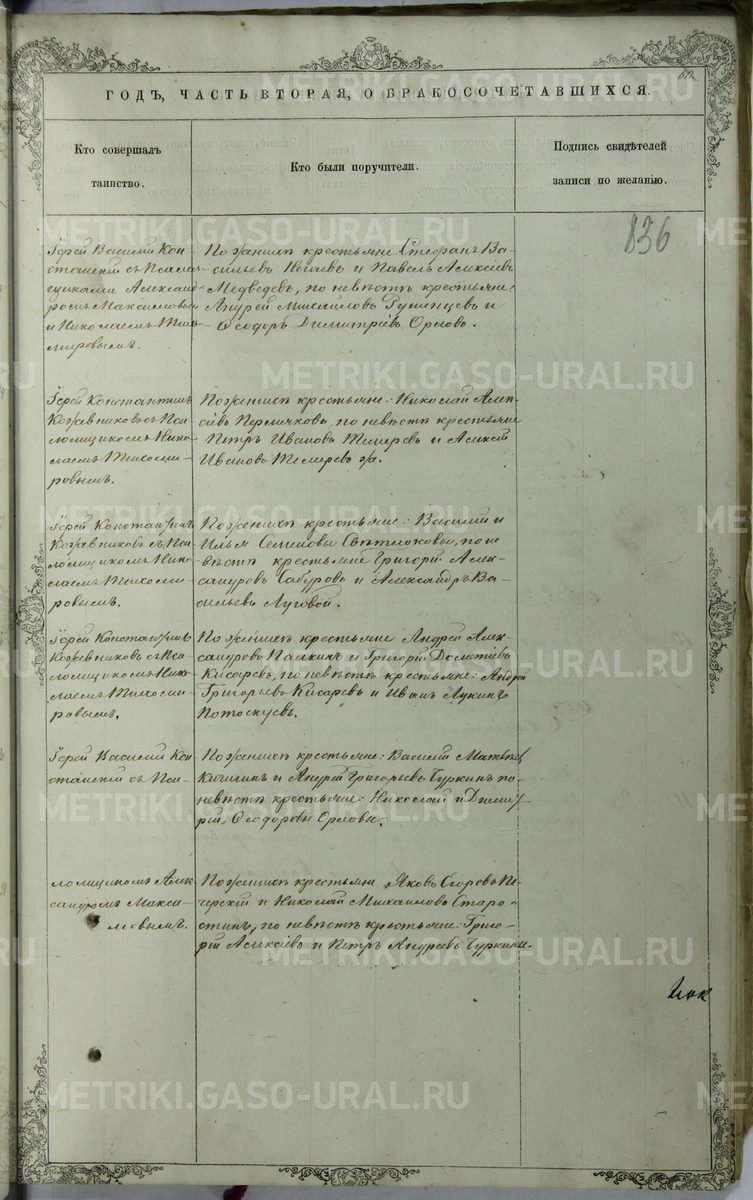 ГОДЪ, ЧАСТЬ ВТОРАЯ, О БРАКОСОЧЕТАВШИХСЯ.
Кто совершалъ
таинство.
Кто были поручители.
Подпись свидѣтелей
записи по желанію.
136
Іерей Василій Кон-
стан­скій съ Псалом-
щиками Александ-
ромъ Максимовы
и Николаемъ Тихо-
мировымъ.
По женихѣ крестьяне Стефанъ Ва-
сильевъ и Павелъ Алексѣевъ
Медведевъ, по невѣстѣ крестьяне:
Андрей Михайловъ и
Ѳеодоръ Димитріевъ Орловъ.
Іерей Константинъ
Кожевниковъ съ Пса-
ломщикомъ Нико-
лаемъ Тихоми-
ровымъ.
По женихѣ крестьяне: Николай Алек-
сѣевъ по невѣстѣ крестьяне
Петръ Ивановъ и Алексѣй
Ивановъ
Іерей Константинъ
Кожевниковъ съ Пса-
ломщикомъ Нико-
лаемъ Тихоми-
ровымъ.
По женихѣ крестьяне: Василій и
Илья Семеновы Свѣтлоковы, по не
вѣстѣ крестьяне Григорій Алек-
сандровъ Сабуровъ и Александръ Ва-
сильевъ Луговой.
Іерей Константинъ
Кожевниковъ съ Пса-
ломщикомъ Нико-
лаемъ Тихоми-
ровымъ.
По женихѣ крестьяне Андрей Алек-
сандровъ Палкинъ и Григорій
Кисаревъ, по невѣстѣ крестьяне: Андрей
Григорьевъ Кисаревъ и Иванъ Лукинъ
Потоскуевъ.
Іерей Василій Кон-
стан­скій съ Пса-
По женихѣ крестьяне: Василій Матвѣевъ
и Андрей Григорьевъ Чуркинъ по
невѣстѣ крестьяне: Николай и Димит-
рій Ѳеодоровы Орловы.
ломщикомъ Алек-
сандромъ Макси-
мовымъ.
По женихѣ крестьяне Яковъ Егоровъ Пе-
черскій и Николай Михайловъ Старо-
стинъ, по невѣстѣ крестьяне: Григо-
рій Алексѣевъ и Петръ Андреевъ Чуркины.
METRIKI.GASO-URAL.RU